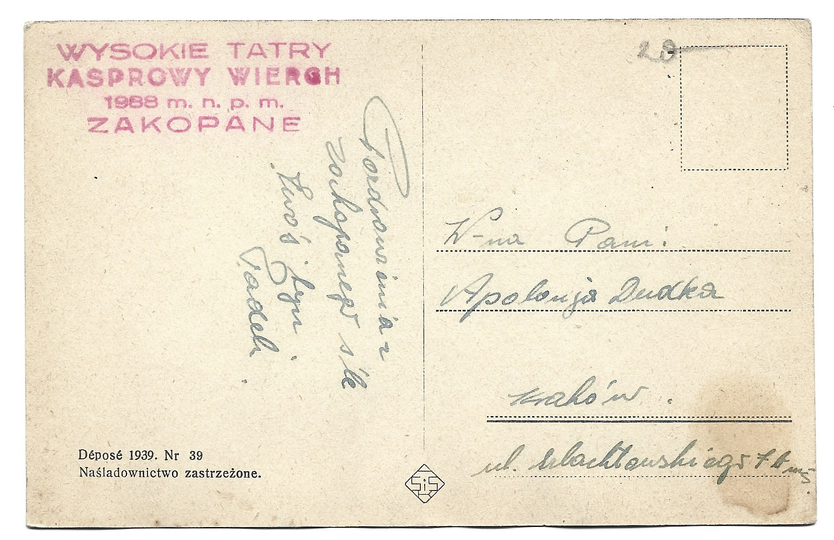 WYSOKIE TATRY
KASPROWY WIERCH
1988 m. n. p. m.
ZAKOPANE
20
Pozdrowienia z
Zachopanego śle
Twoś syn
Tadek.
W-na Pani:
Apolonja Dudka
Kraków.
ul. 7
Déposé 1939. Nr 39
Naśladownictwo zastrzeżone.
SiS